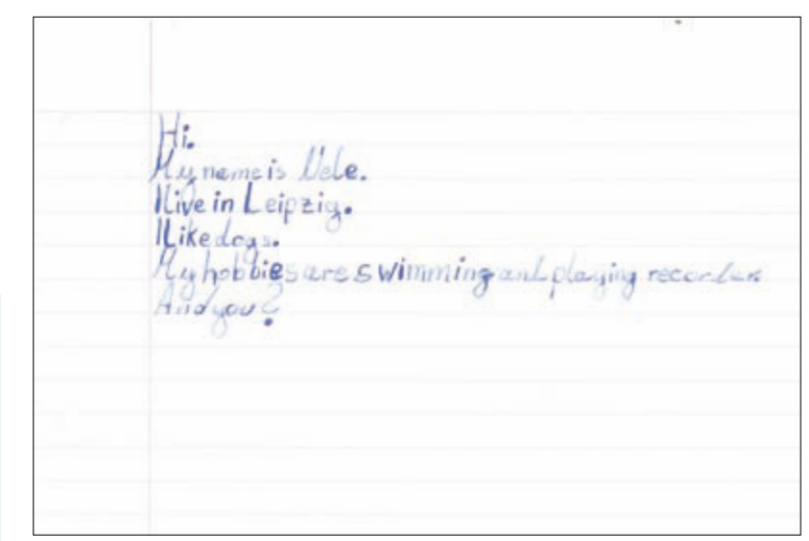 Hi.
My name is Nele.
I live in Leipzig.
I like dogs.
My hobbies are swimming and playing recorder.
And you?